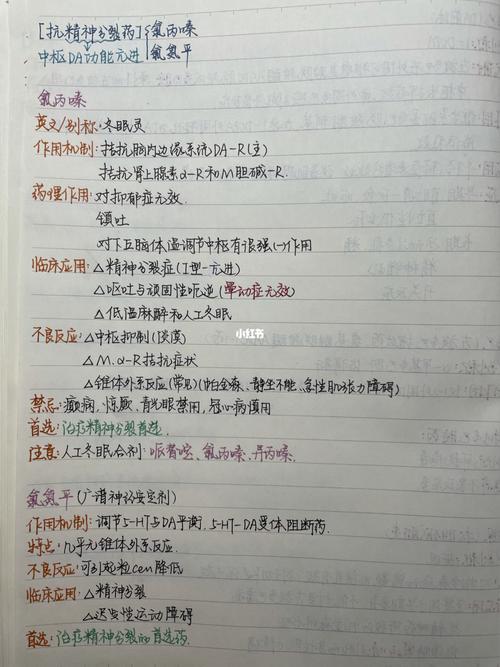 [抗精神分裂药] 氯丙嗪
中枢DA功能亢进 氯氮平
氯丙嗪
英文/别称:冬眠灵
作用机制:拮抗脑内边缘系统DA-R(主)
拮抗肾上腺素α-R和M胆碱-R.
药理作用:对抑郁症无效
镇吐
对下丘脑体温调节中枢有很强(-)作用
临床应用:△精神分裂症(I型-亢进)
△呕吐与顽固性呃逆(晕动症无效)
△低温麻醉和人工冬眠
小红书
不良反应:△中枢抑制(淡漠)
△M.α-R拮抗症状
△锥体外系反应(常见)(帕金森、静坐不能、急性肌张力障碍)
禁忌:癫痫,惊厥,青光眼禁用,冠心病慎用
首选:治疗精神分裂首选.
注意:人工冬眠合剂:哌替啶、氯丙嗪、异丙嗪.
氯氮平(广谱神经安定剂)
作用机制:调节5-HT与DA平衡,5-HT-DA受体阻断药.
特点:几乎无锥体外系反应.
不良反应:可引起粒cell降低
临床应用:△精神分裂
△迟发性运动障碍
首选:治疗精神分裂的首选药.